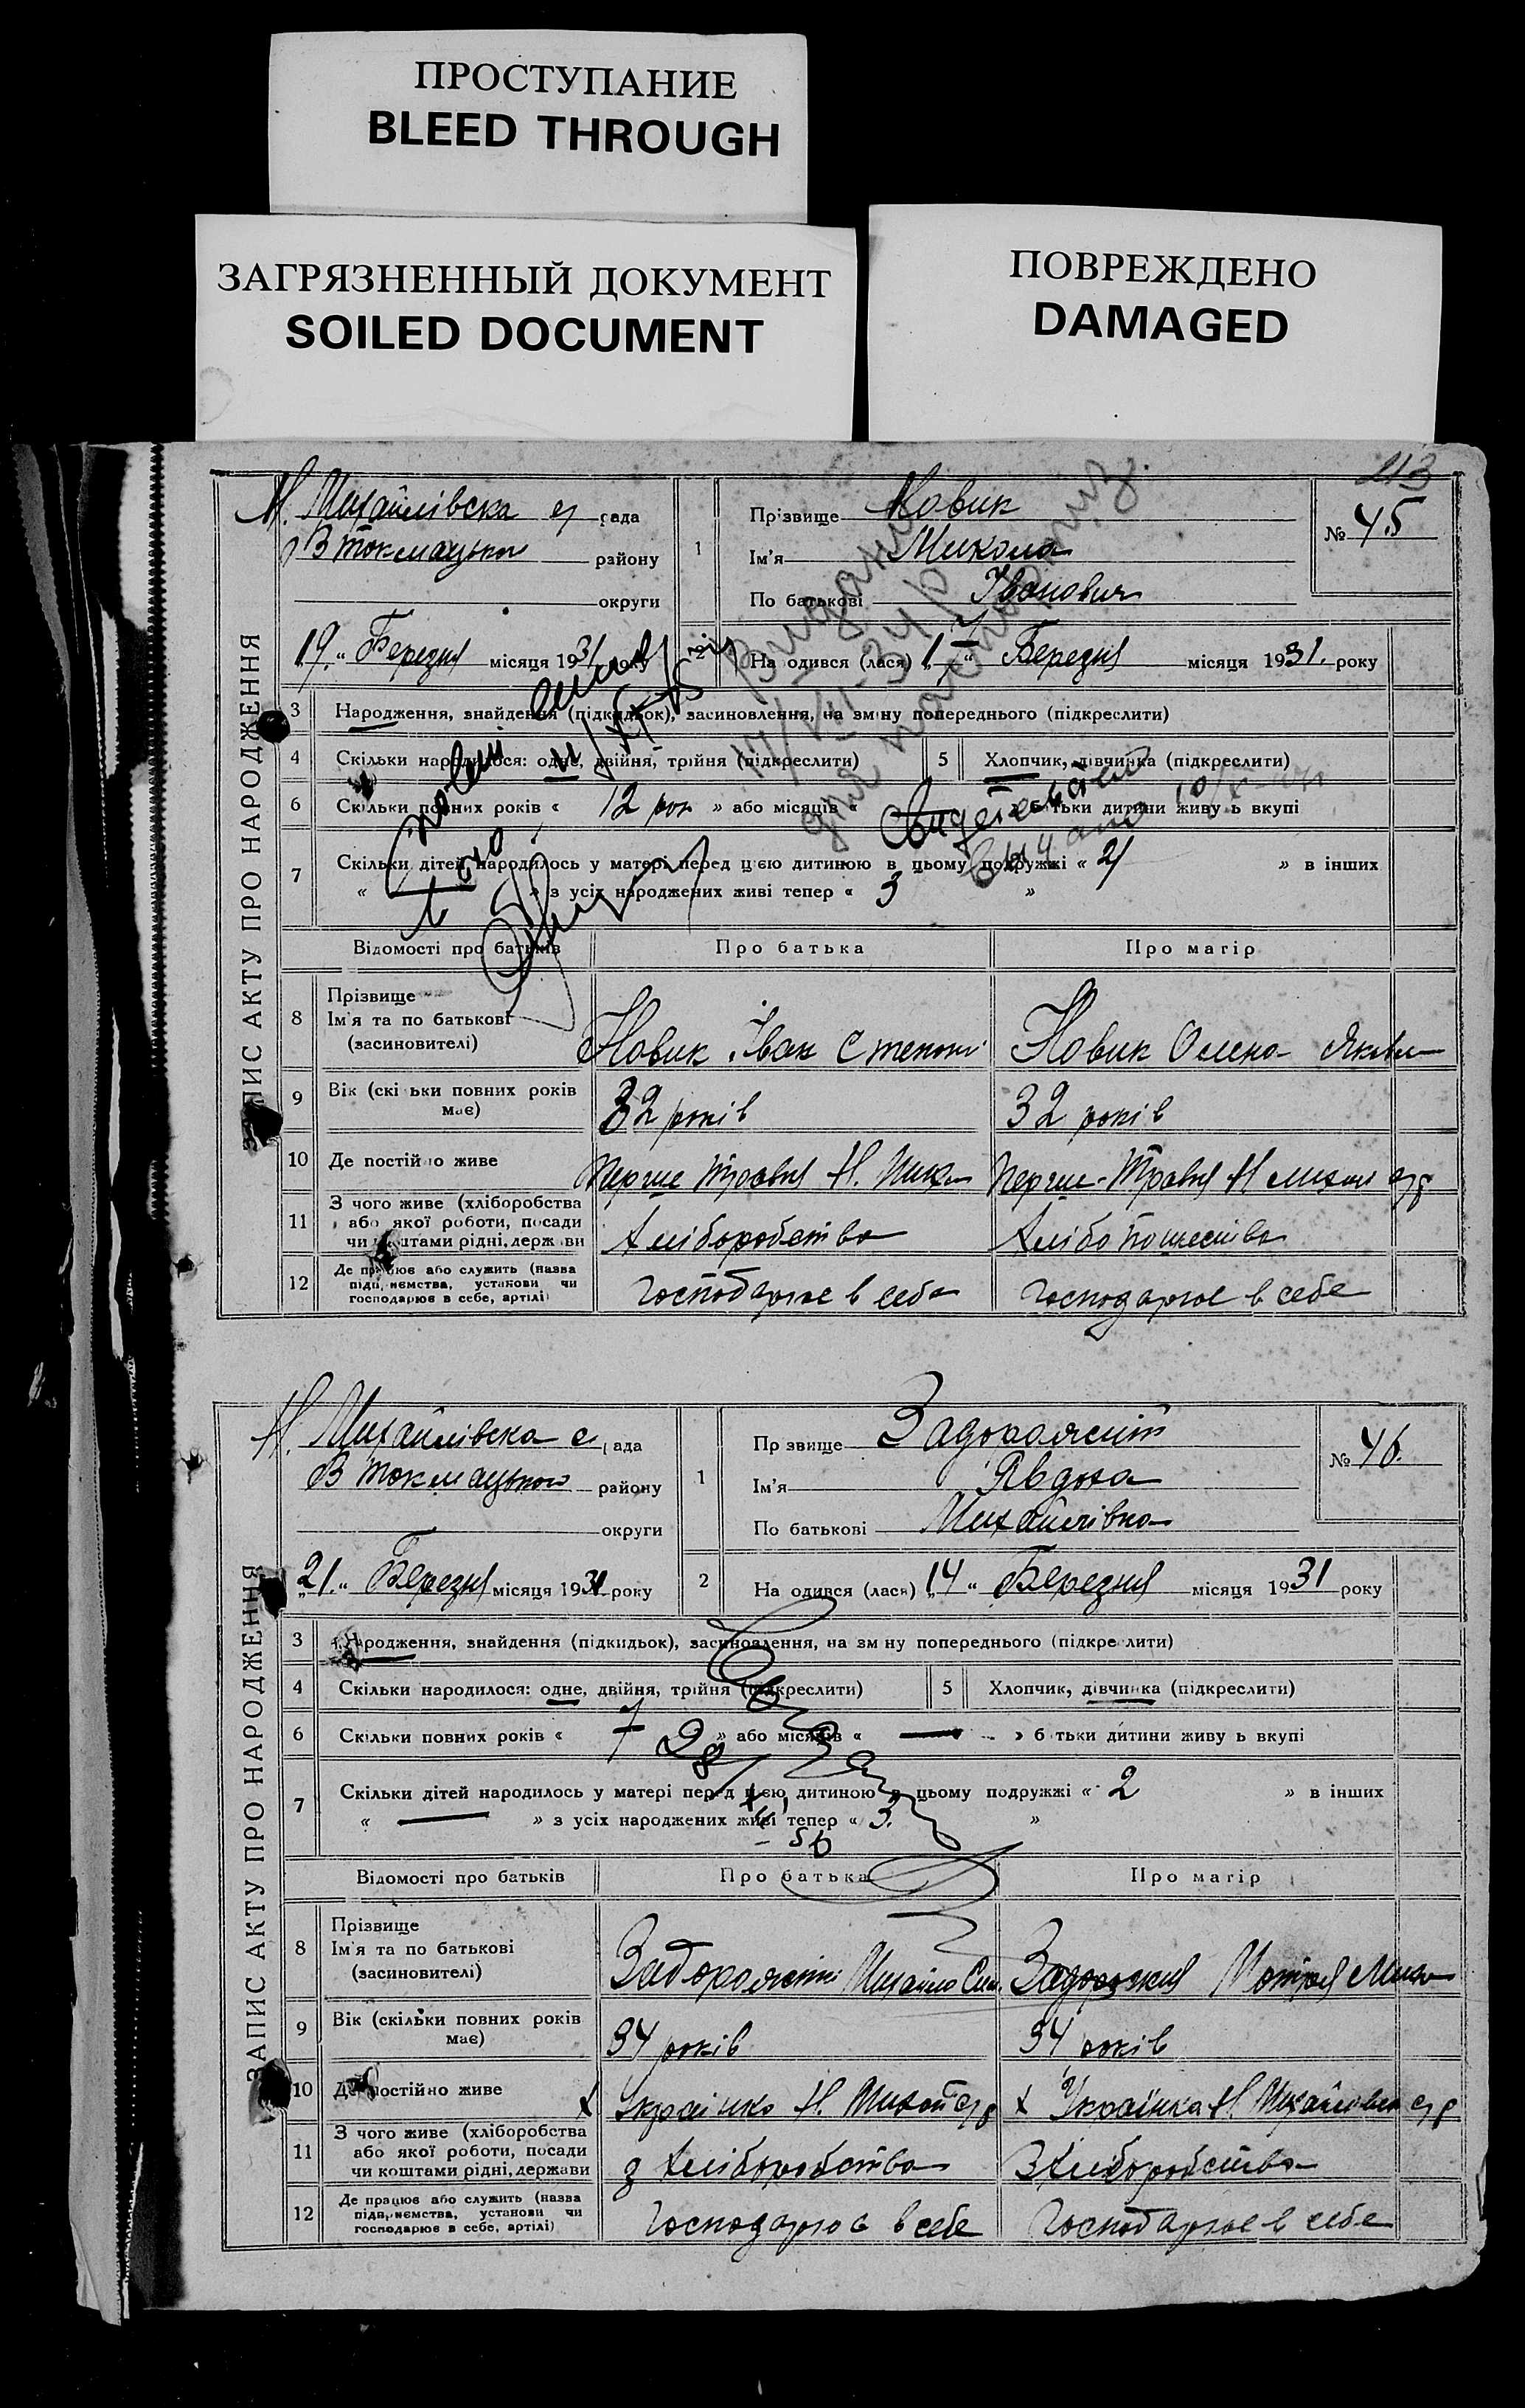 ПРОСТУПАНИЕ
BLEED THROUGH
ЗАГРЯЗНЕННЫЙ ДОКУМЕНТ
SOILED DOCUMENT
ПОВРЕЖДЕНО
DAMAGED
213
ЗАПИС АКТУ ПРО НАРОДЖЕННЯ
Н. Михайлівска рада
В Токмацького району
округи
19 „ Березня місяця 1931 року
1 Прізвище Новик
Ім'я Микола
По батькові Іванович
№ 45
2 На одився (лася) „ 17 “ Березня місяця 1931. року
Видани
3 Народження, знайдення (підкидьок), засиновлення, на зміну попереднього (підкреслити)
4 Скільки народилося: одне, двійня, трійня (підкреслити)
5 Хлопчик, дівчинка (підкреслити)
6 Скільки повних років « 12 рок » або місяців « » батьки дитини живу ь вкупі
7 Скільки дітей народилось у матері перед цією дитиною в цьому подружжі « 2 » в інших
« » з усіх народжених живі тепер « 3 »
Відомості про батьків Про батька Про матір
8 Прізвище
Ім'я та по батькові
(засиновителі)
Новик Іван Степан Новик Олена
9 Вік (скі ьки повних років має) 32 років 32 років
10 Де постійно живе Перше Травня Н. Перше-Травня Н
11 З чого живе (хліборобства
або якої роботи, посади
чи коштами рідні, держави
Хліборобства
12 Де працює або служить (назва
підприємства, установи чи
господарює в себе, артілі)
Господарює в себе Господарює в себе
ЗАПИС АКТУ ПРО НАРОДЖЕННЯ
Н. Михайлівска с рада
В Токмацького району
округи
„ 21. “ Березня місяця 1931 року
1 Пр звище
Ім'я Явдоха
По батькові Михайлівна
№ 46.
2 На одився (лася) „ 14 “ Березня місяця 1931 року
3 Народження, знайдення (підкидьок), засиновлення, на зм ну попереднього (підкре лити)
4 Скільки народилося: одне, двійня, трійня (підкреслити)
5 Хлопчик, дівчинка (підкреслити)
6 Скільки повних років « 7 » або місяців « — » б тьки дитини живу ь вкупі
7 Скільки дітей народилось у матері перед цією дитиною в цьому подружжі « 2 » в інших
« — » з усіх народжених живі тепер « 3. »
Відомості про батьків Про батька Про матір
8 Прізвище
Ім'я та по батькові
(засиновителі)
Михайло
9 Вік (скільки повних років має) 34 років 34 років
10 Де постійно живе Українка Н. Українка Н.
11 З чого живе (хліборобства
або якої роботи, посади
чи коштами рідні, держави
з Хліборобства З Хліборобства
12 Де працює або служить (назва
підприємства, установи чи
господарює в себе, артілі)
Господарює в себе Господарює в себе